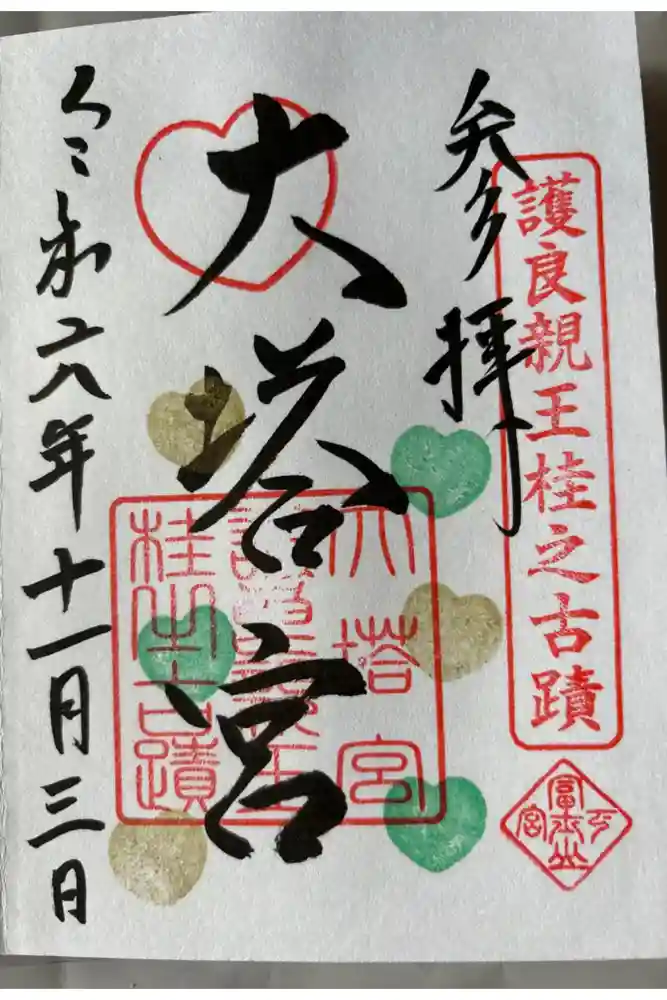 参拝
護良親王桂之古蹟
富士山
下宮
大塔宮
大塔宮
護良親王
桂之古蹟
令和六年十一月三日